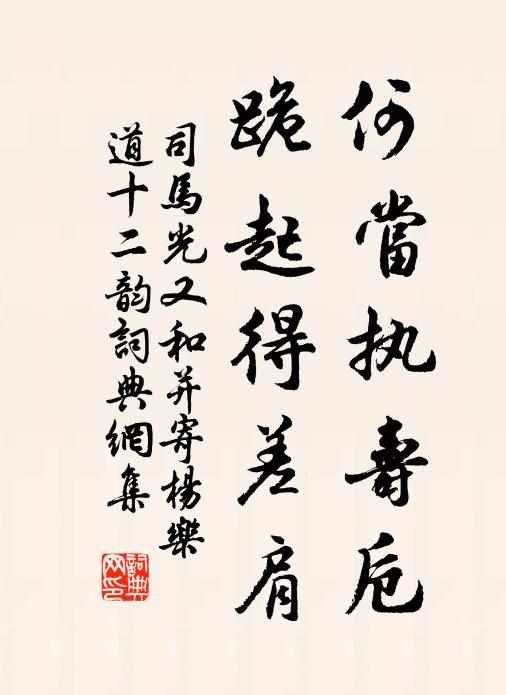 何當执壽卮
跪起得差肩
司馬光又和并寄楊樂
道十二韵詞典網集
詞典
网印